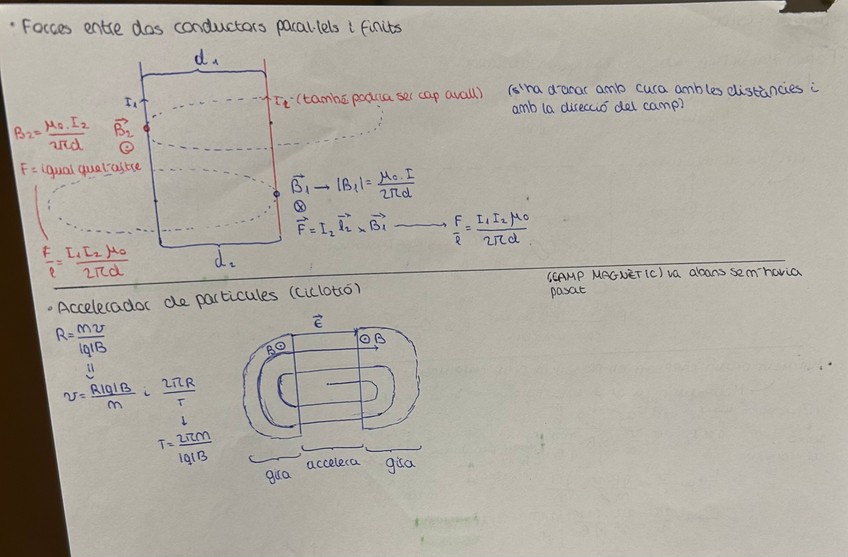 · Forces entre dos conductors paral·lels i finits
d₁
I₁
I₂ (també podria ser cap avall)
(s'ha d'anar amb cura amb les distàncies i
amb la direcció del camp)
B₂ = μ₀·I₂ / 2πd
B⃗₂
⊙
F = igual que l'altre
B⃗₁ → |B₁| = μ₀·I / 2πd
⊗
F⃗ = I₂ l⃗₂ × B⃗₁ → F/l = I₁ I₂ μ₀ / 2πd
F/l = I₁ I₂ μ₀ / 2πd
d₂
(CAMP MAGNÈTIC) va abans se m'havia
pasat
· Accelerador de particules (ciclotró)
R = mv / |q|B
E⃗
B⊙
⊙B
v = R|q|B / m i 2πR / T
↓
T = 2πm / |q|B
gira
accelera
gira